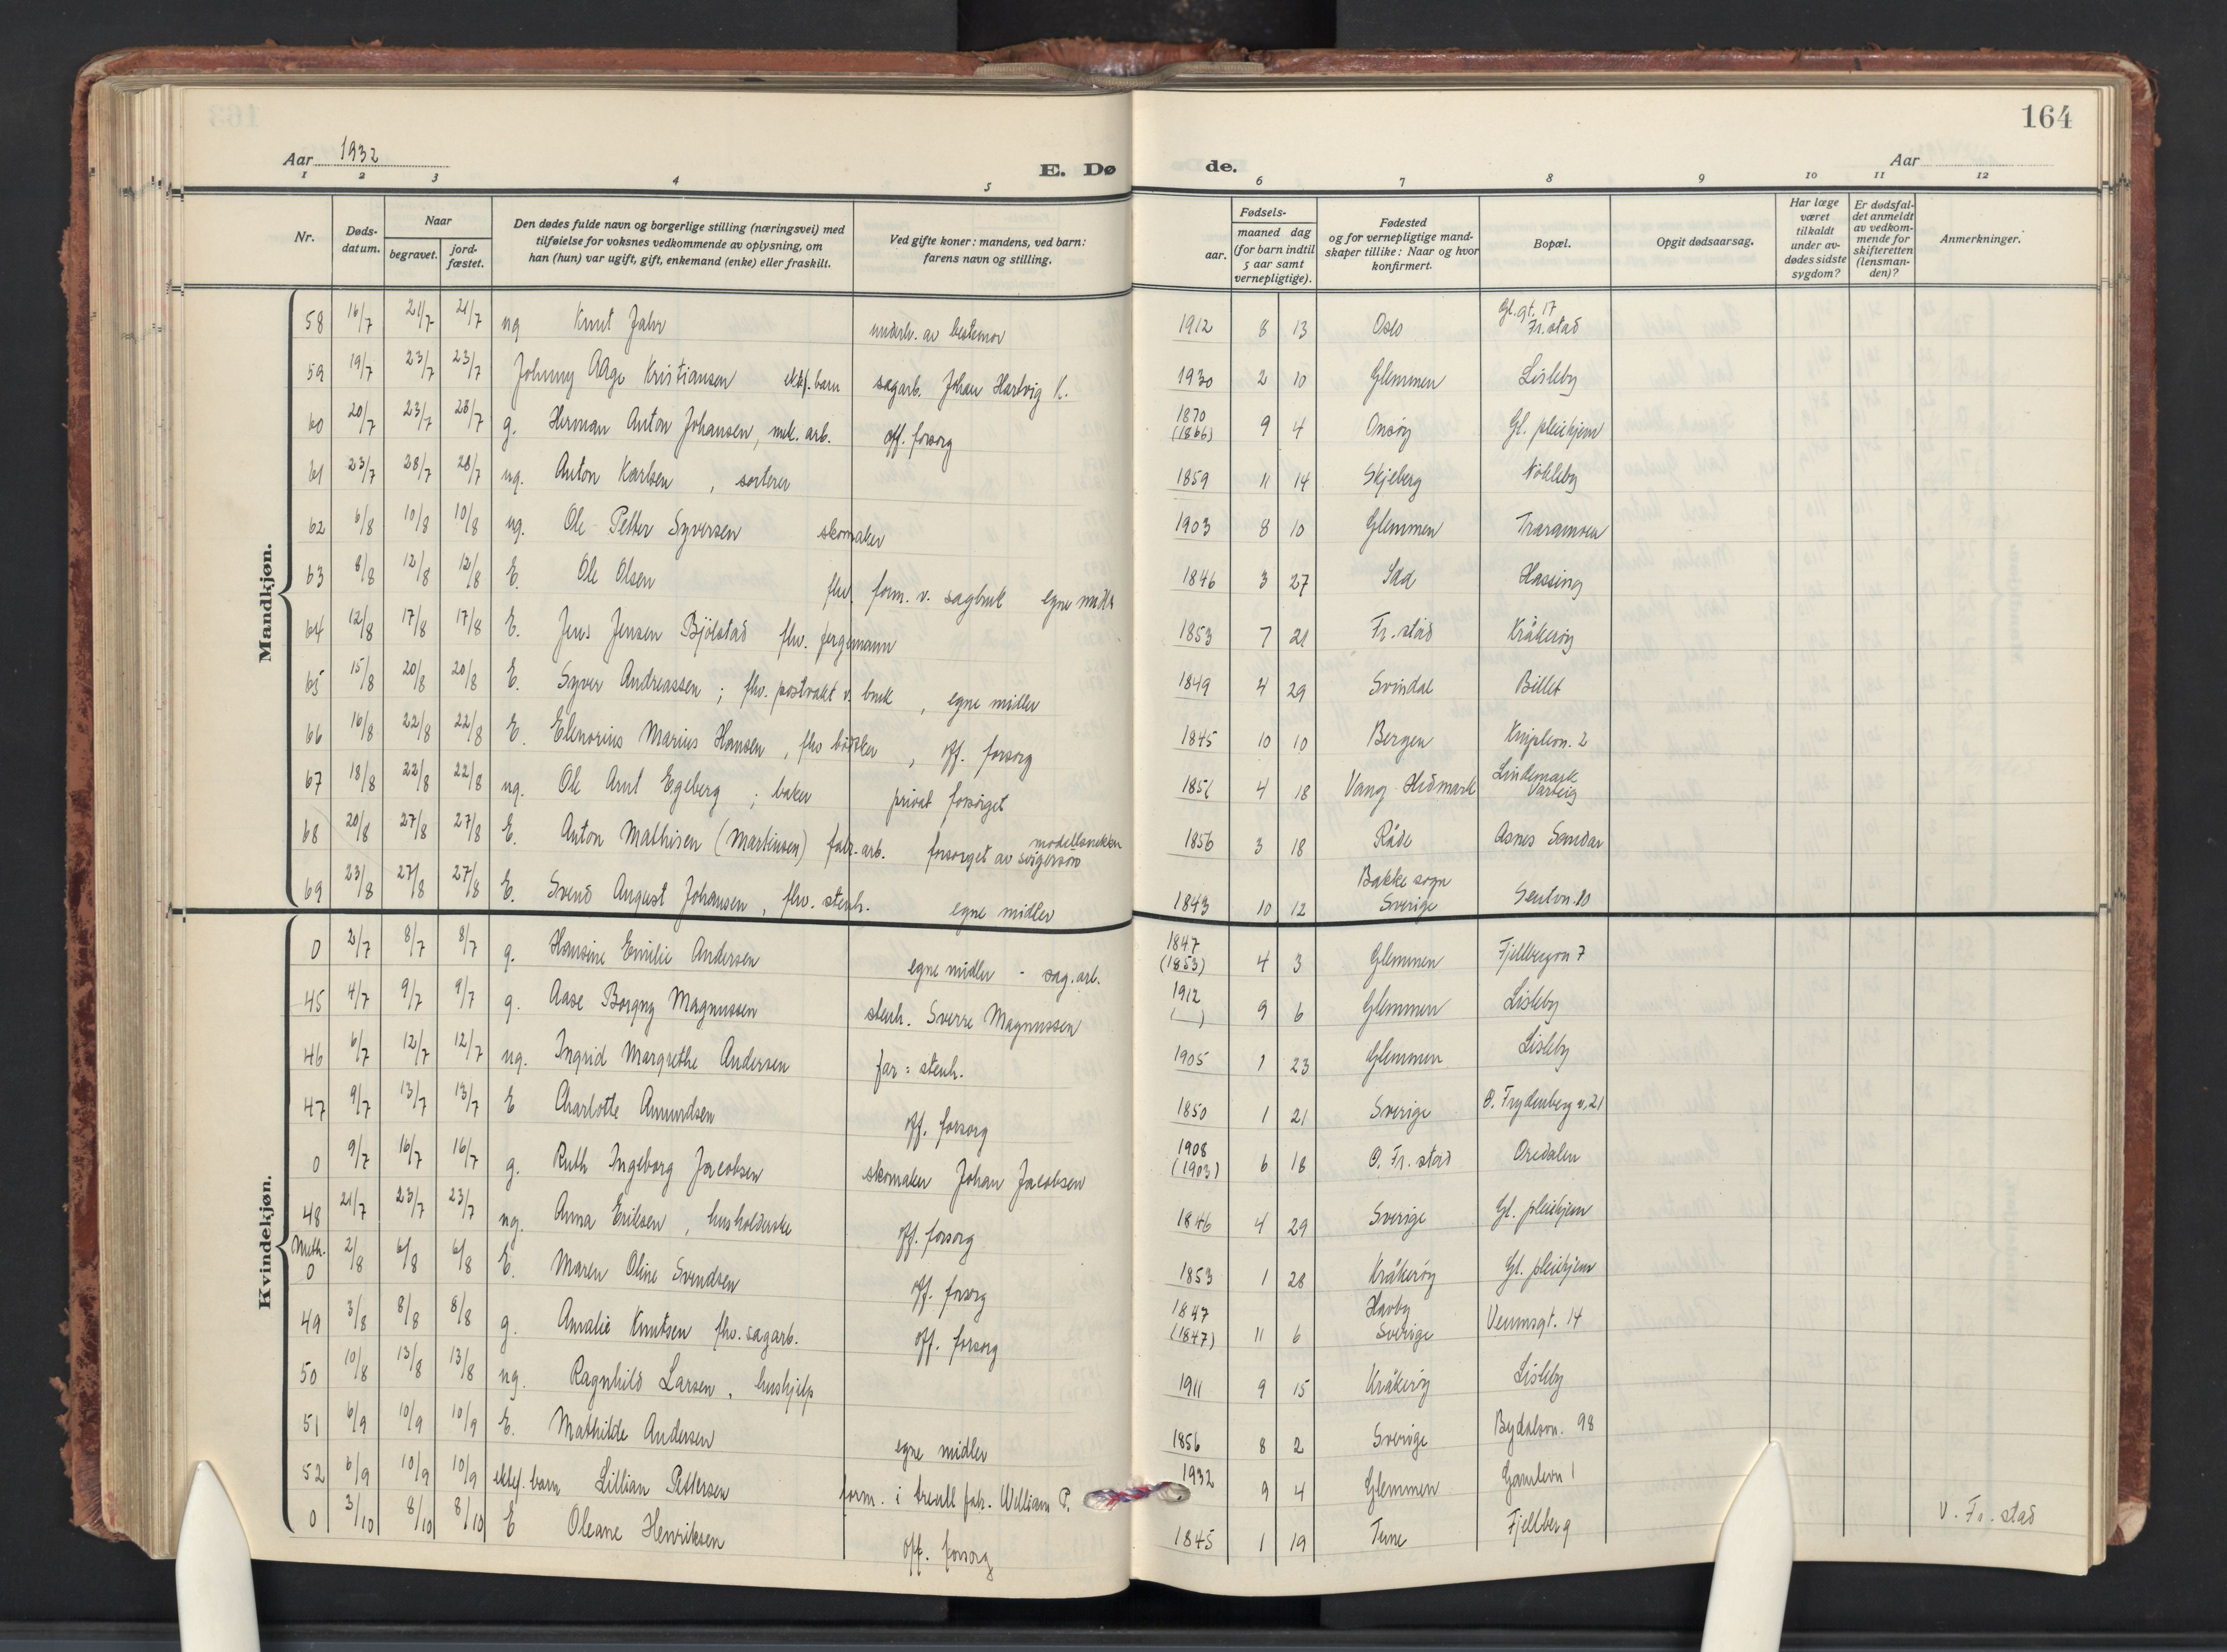 163
164
Aar 1932
E. Dø
de.
Aar
1 2 3 4 5 6 7 8 9 10 11 12
Nr.
Døds-datum.
Naar
begravet.
jord-fæstet.
Den dødes fulde navn og borgerlige stilling (næringsvei) med tilføielse for voksnes vedkommende av oplysning, om han (hun) var ugift, gift, enkemand (enke) eller fraskilt.
Ved gifte koner: mandens, ved barn: farens navn og stilling.
Fødsels-
aar.
maaned dag (for barn indtil 5 aar samt vernepligtige).
Fødested og for vernepligtige mandskaper tillike: Naar og hvor konfirmert.
Bopæl.
Opgit dødsaarsag.
Har læge været tilkaldt under avdødes sidste sygdom?
Er dødsfaldet anmeldt av vedkommende for skifteretten (lensmanden)?
Anmerkninger.
Mandkjøn.
58 16/7 21/7 21/7 ug Knut Jahr underh. av bestemor 1912 8 13 Oslo Gl.gt. 17 Fr.stad
59 19/7 23/7 23/7 Johnny Aage Kristiansen ektef. barn sagarb. Johan Hartvig K. 1930 2 10 Glemmen Lisleby
60 20/7 23/7 23/7 g. Herman Anton Johansen, mek. arb. off. forsorg 1870 (1866) 9 4 Onsøy Gl. pleiehjem
61 23/7 28/7 28/7 ug. Anton Karlsen, sorterer 1859 11 14 Skjeberg Nökleby
62 6/8 10/8 10/8 ug. Ole Petter Syversen skomaker 1903 8 10 Glemmen Traramoen
63 8/8 12/8 12/8 E. Ole Olsen fhv. form. v. sagbruk egne midler 1846 3 27 Idd Hassing
64 12/8 17/8 17/8 E. Jens Jensen Bjölstad fhv. fergemann 1853 7 21 Fr.stad Kråkeröy
65 15/8 20/8 20/8 E. Syver Andreassen; fhv. postvakt v. bruk, egne midler 1849 4 29 Svindal Billet
66 16/8 22/8 22/8 E. Elenorius Marius Hansen, fhv bökker, off. forsorg 1845 10 10 Bergen Knipleon. 2
67 18/8 22/8 22/8 ug. Ole Arnt Egeberg; baker privat forsörget 1856 4 18 Vang Hedmark Lindemark Varteig
68 20/8 27/8 27/8 E. Anton Mathisen (Martinsen) fabr. arb. forsörget av svigersön modellsnekker 1856 3 18 Råde Åsnes Sandar
69 23/8 27/8 27/8 E. Svend August Johansen, fhv. stenh. egne midler 1843 10 12 Bakke sogn Sverige
Kvindekjøn.
0 2/7 8/7 8/7 g. Hansine Emilie Andersen egne midler - sag.arb. 1847 (1853) 4 3 Glemmen Fjellbergvn 7
45 4/7 9/7 9/7 g. Aase Borgny Magnussen stenh. Sverre Magnussen 1912 ( ) 9 6 Glemmen Lisleby
46 6/7 12/7 12/7 ug. Ingrid Margrethe Andersen far: stenh. 1905 1 23 Glemmen Lisleby
47 9/7 13/7 13/7 E Charlotte Amundsen off. forsorg 1850 1 21 Sverige Ö. Frydenberg v. 21
0 9/7 16/7 16/7 g. Ruth Ingeborg Jacobsen skomaker Johan Jacobsen 1908 (1903) 6 18 Ö. Fr.stad Oredalen
48 21/7 23/7 23/7 ug. Anna Eriksen, husholderske off. forsorg 1846 4 29 Sverige Gl. pleiehjem
Meth. 0 2/8 6/8 6/8 E. Maren Oline Svendsen off. forsorg 1853 1 28 Kråkeröy Gl. pleiehjem
49 3/8 8/8 8/8 g. Amalie Knutsen fhv. sagarb. off. forsorg 1847 (1847) 11 6 Havby Sverige Veumsgt. 14
50 10/8 13/8 13/8 ug. Ragnhild Larsen, hushjelp 1911 9 15 Kråkeröy Lisleby
51 6/9 10/9 10/9 E. Mathilde Andersen egne midler 1856 8 2 Sverige Bydalsvn. 98
52 6/9 10/9 10/9 ektef. barn Lillian Pettersen form. i treull fab. William P. 1932 9 4 Glemmen Gamlevn 1
0 3/10 8/10 8/10 E Oleane Henriksen off. forsorg 1845 1 19 Tune Fjellberg V. Fr.stad